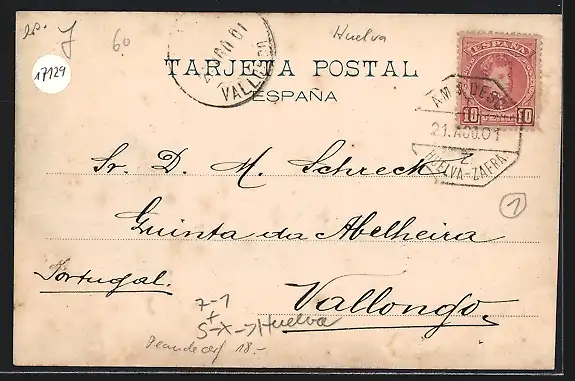 es. J 60 Huelva
17129
TARJETA POSTAL
ESPAÑA
VALLONGO
ESPAÑA
10 10
AMB. DESC.
21.AGO.01
2.
HUELVA-ZAFRA
1
Sr. D. M. Schreck
Quinta da Abelheira
Portugal.
Vallongo.
7-1
+
5-X->Huelva
18.-